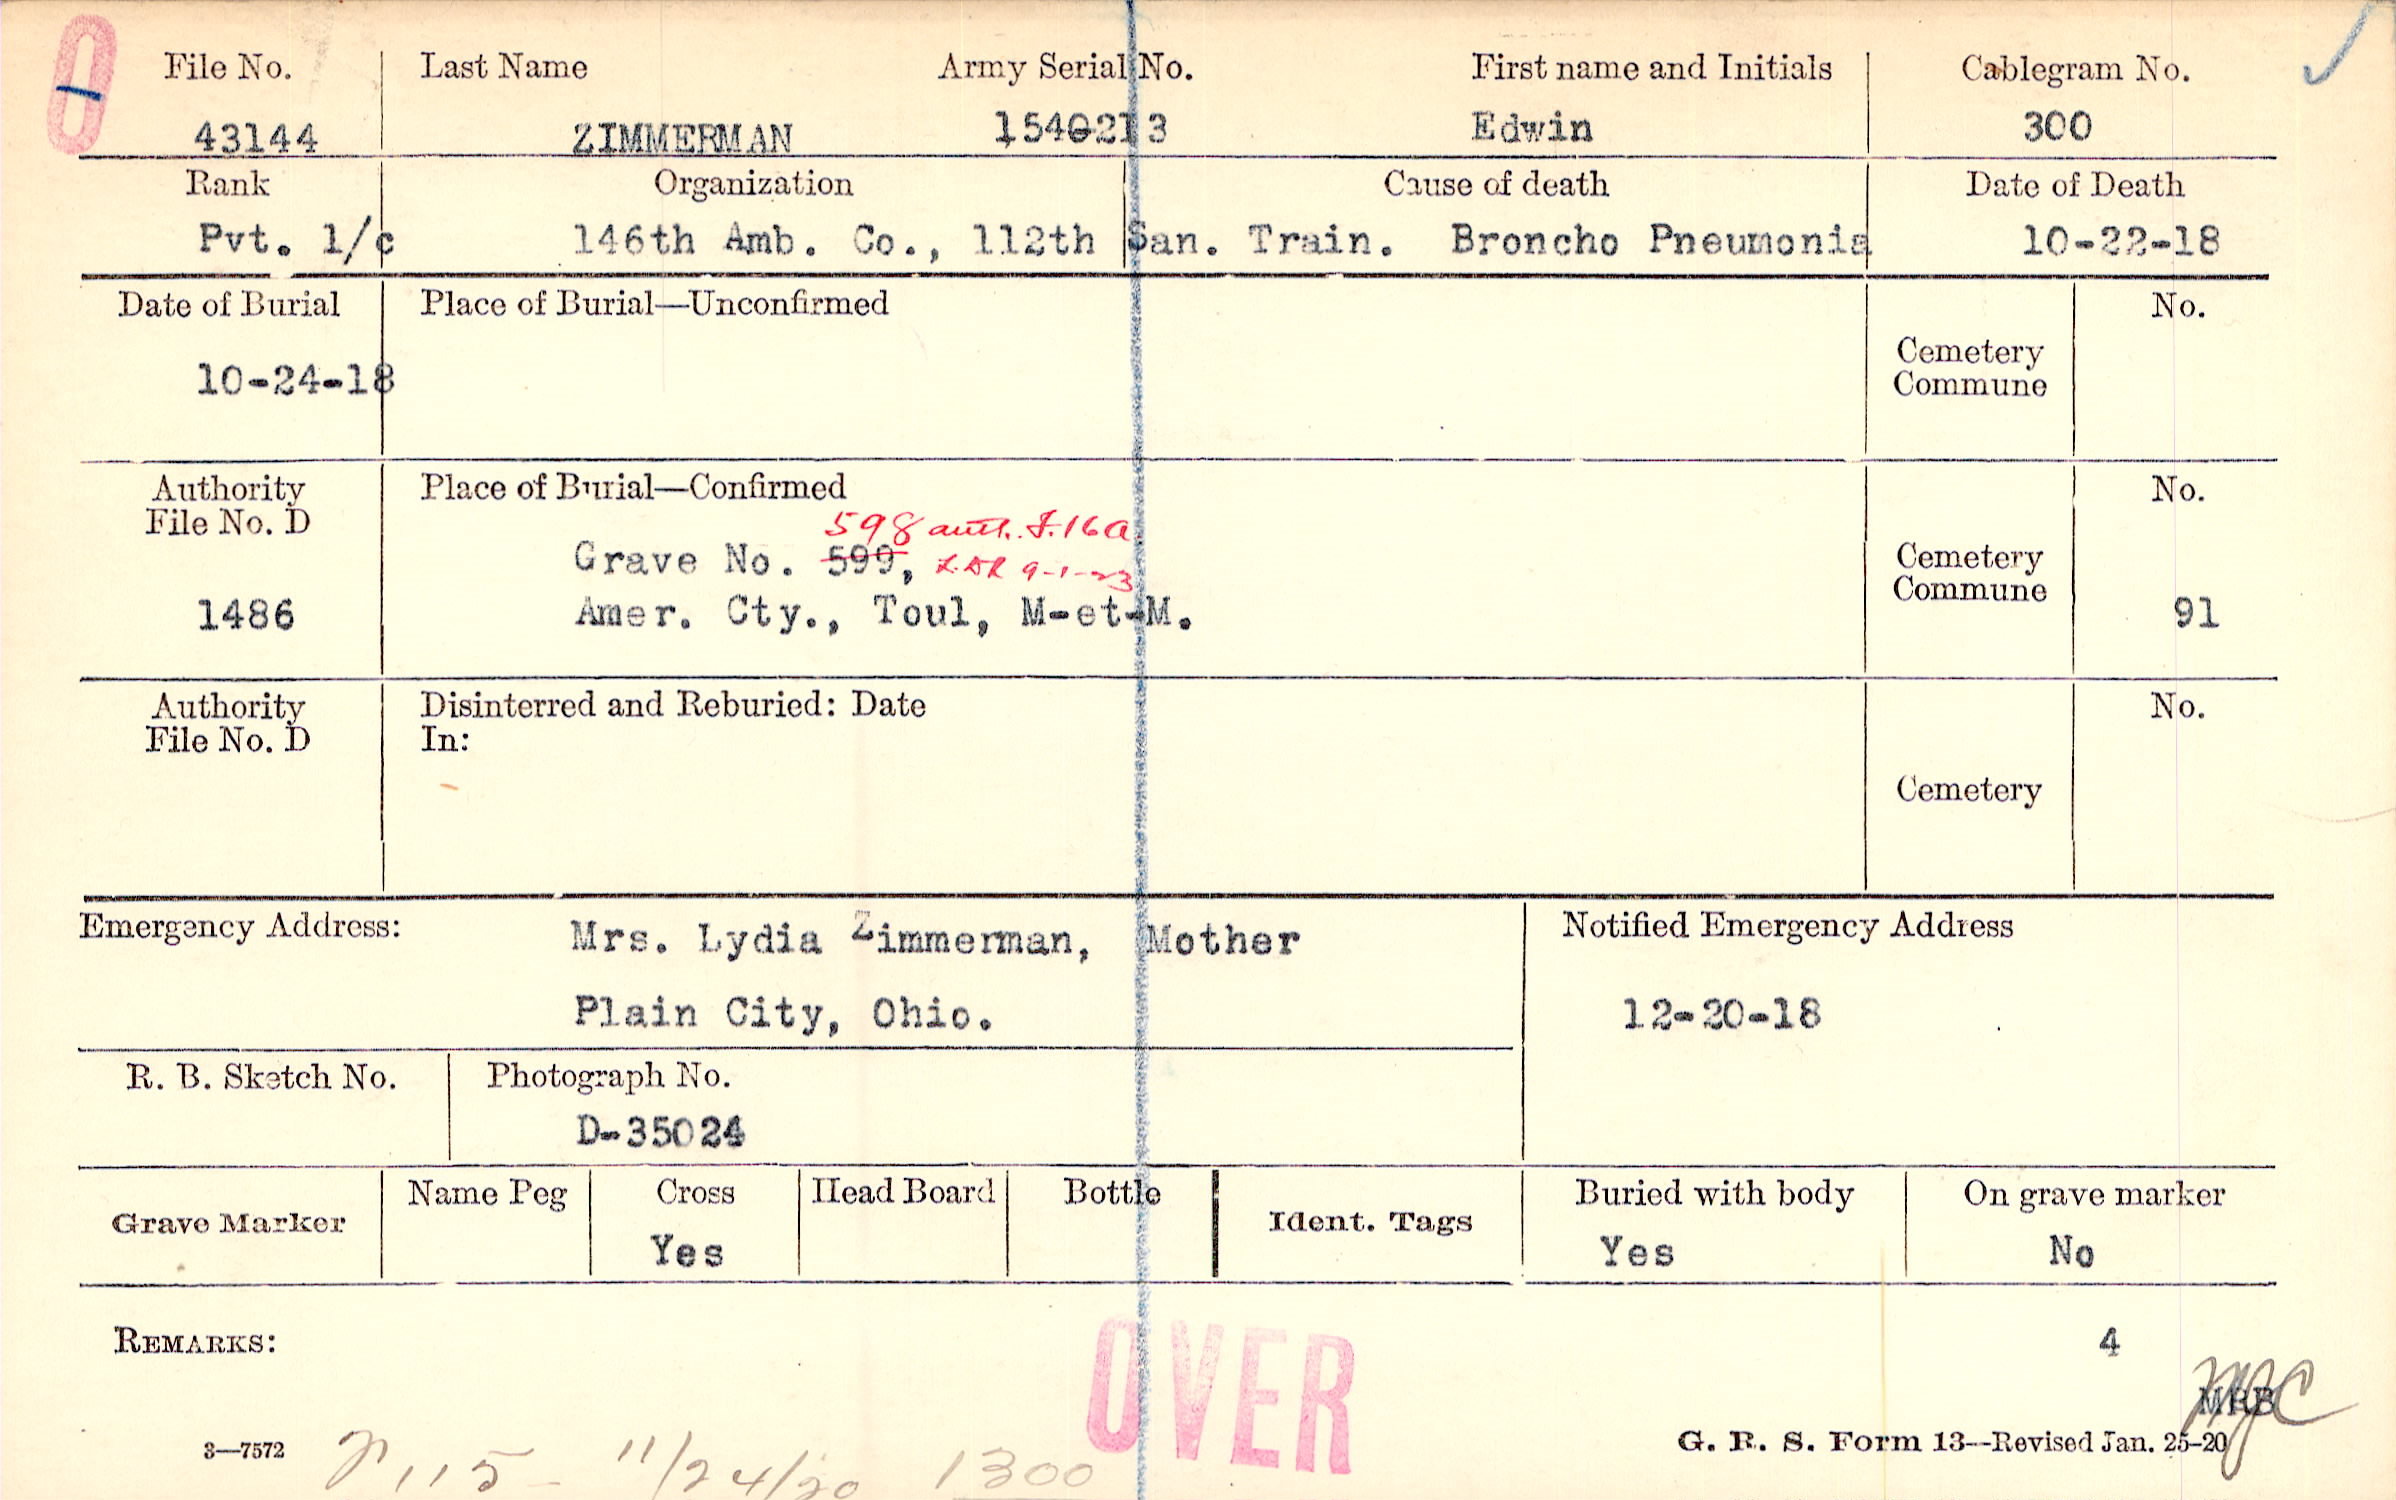 0
File No. Last Name Army Serial No. First name and Initials Cablegram No.
43144 ZIMMERMAN 1540213 Edwin 300
Rank Organization Cause of death Date of Death
Pvt. 1/c 146th Amb. Co., 112th San. Train. Broncho Pneumonia 10-22-18
Date of Burial Place of Burial—Unconfirmed No.
Cemetery
Commune
10-24-18
Authority Place of Burial—Confirmed No.
File No. D
598 auth. F.16a
Grave No. 599, 9-1-23
Cemetery
Commune
1486 Amer. Cty., Toul, M-et-M. 91
Authority Disinterred and Reburied: Date No.
File No. D In:
Cemetery
Emergency Address: Mrs. Lydia Zimmerman, Mother Notified Emergency Address
Plain City, Ohio. 12-20-18
R. B. Sketch No. Photograph No.
D-35024
Grave Marker Name Peg Cross Head Board Bottle Ident. Tags Buried with body On grave marker
Yes Yes No
REMARKS: 4
OVER
MRB
3—7572 G. R. S. Form 13—Revised Jan. 25-20
115 - 11/24/20 1300